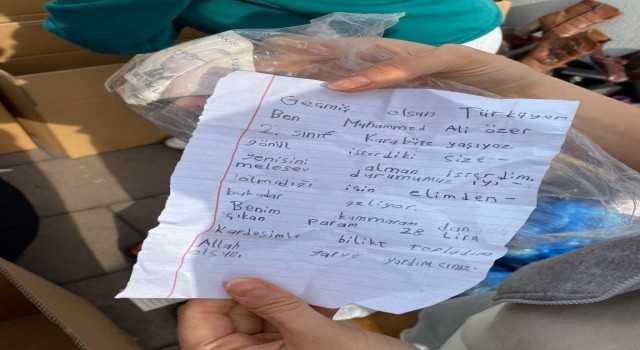 Geçmiş olsun Türkiyem
Ben Muhammed Ali özer
2. sınıf Karabüte yaşıyoz
gönül isterdiki size-
yenisini alman isterdim.
melesev durumumuz iyi-
olmadığı için elimden-
bukadar geliyor.
Benim kummaram dan
çıkan param 28 Lira
Kardeşimle bilikt topladım
Allah yarve yardımcınız-
olsun.